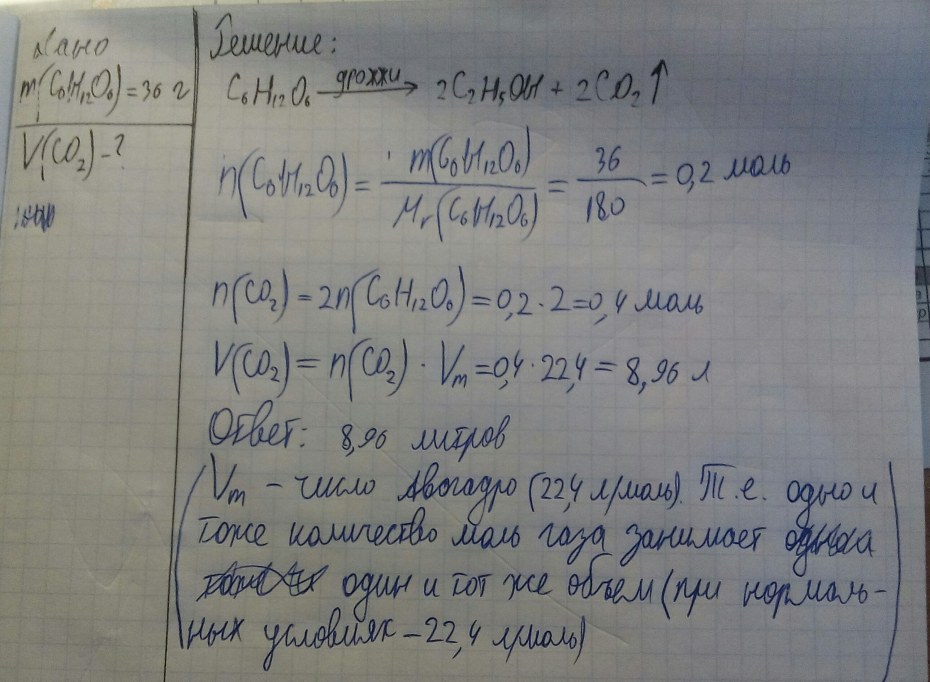 Дано
m(C₆H₁₂O₆)=36 г
V(CO₂)-?
Решение:
C₆H₁₂O₆ дрожжи → 2C₂H₅OH + 2CO₂↑
n(C₆H₁₂O₆) = m(C₆H₁₂O₆) / Mr(C₆H₁₂O₆) = 36 / 180 = 0,2 моль
n(CO₂) = 2n(C₆H₁₂O₆) = 0,2 · 2 = 0,4 моль
V(CO₂) = n(CO₂) · Vm = 0,4 · 22,4 = 8,96 л
Ответ: 8,96 литров
(Vm – число Авогадро (22,4 л/моль). Т.е. одно и
тоже количество моль газа занимает
один и тот же объем (при нормаль-
ных условиях – 22,4 л/моль)